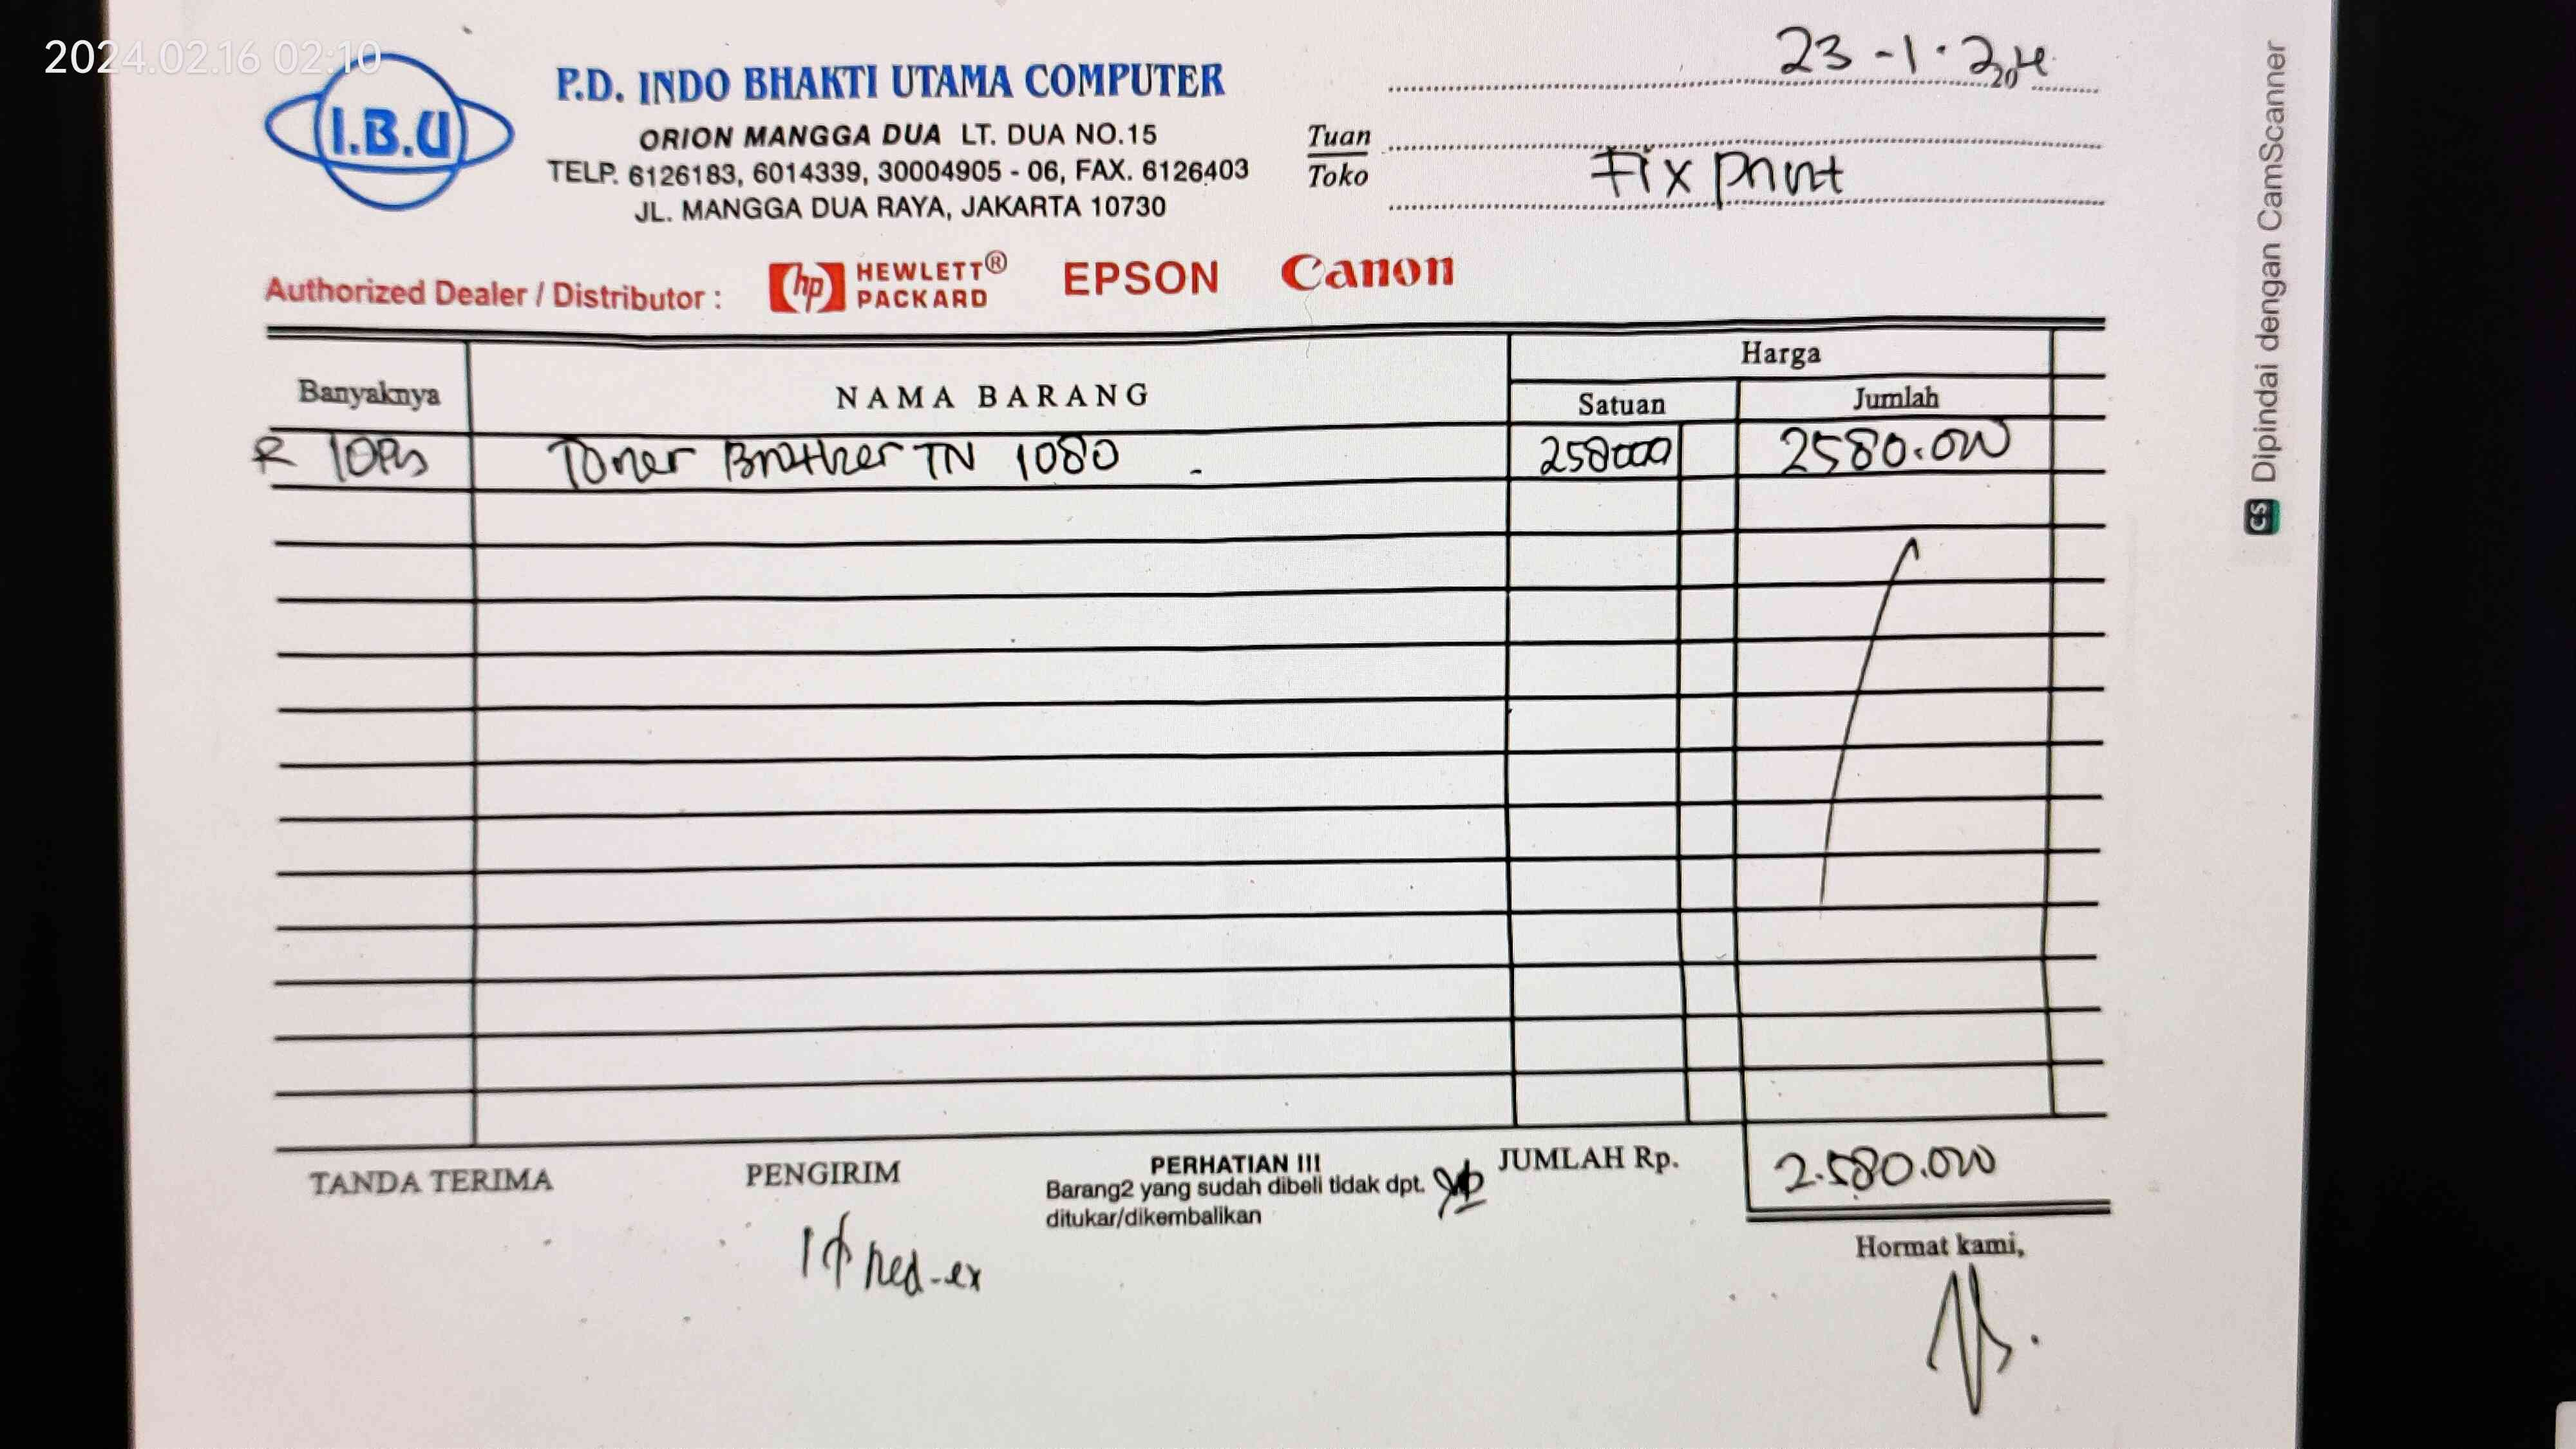 2024.02.16 02:10
23-1-24
20
I.B.U
P.D. INDO BHAKTI UTAMA COMPUTER
ORION MANGGA DUA LT. DUA NO.15
TELP. 6126183, 6014339, 30004905 - 06, FAX. 6126403
JL. MANGGA DUA RAYA, JAKARTA 10730
Tuan
Toko
Fix print
Authorized Dealer / Distributor : hp HEWLETT® PACKARD EPSON Canon
Banyaknya NAMA BARANG Harga
Satuan Jumlah
10Ps Toner Brother TN 1080 - 258000 2580.000
TANDA TERIMA PENGIRIM PERHATIAN !!! JUMLAH Rp. 2.580.000
Barang2 yang sudah dibeli tidak dpt.
ditukar/dikembalikan
red-ex
Hormat kami,
CS Dipindai dengan CamScanner